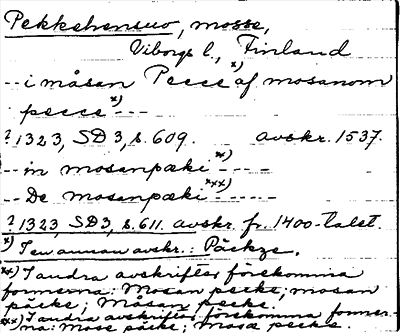 Pekkehensuo, mosse,
Viborgs l., Finland
-- i måsan Pecce x) af mosanom
pecce x) ---
? 1323, SD 3, s. 609. avskr. 1537.
-- in mosanpæki xx) ----
-- De mosanpæki xxx) -----
? 1323, SD3, s. 611. avskr. fr. 1400-talet.
x) I en annan avskr.: Päckze.
xx) I andra avskrifter förekomma
formerna: Mosan pecke; mosan
päcke; Måsan pecke.
xxx) I andra avskrifter förekomma former-
na: Mose päcke; mosæ pecke